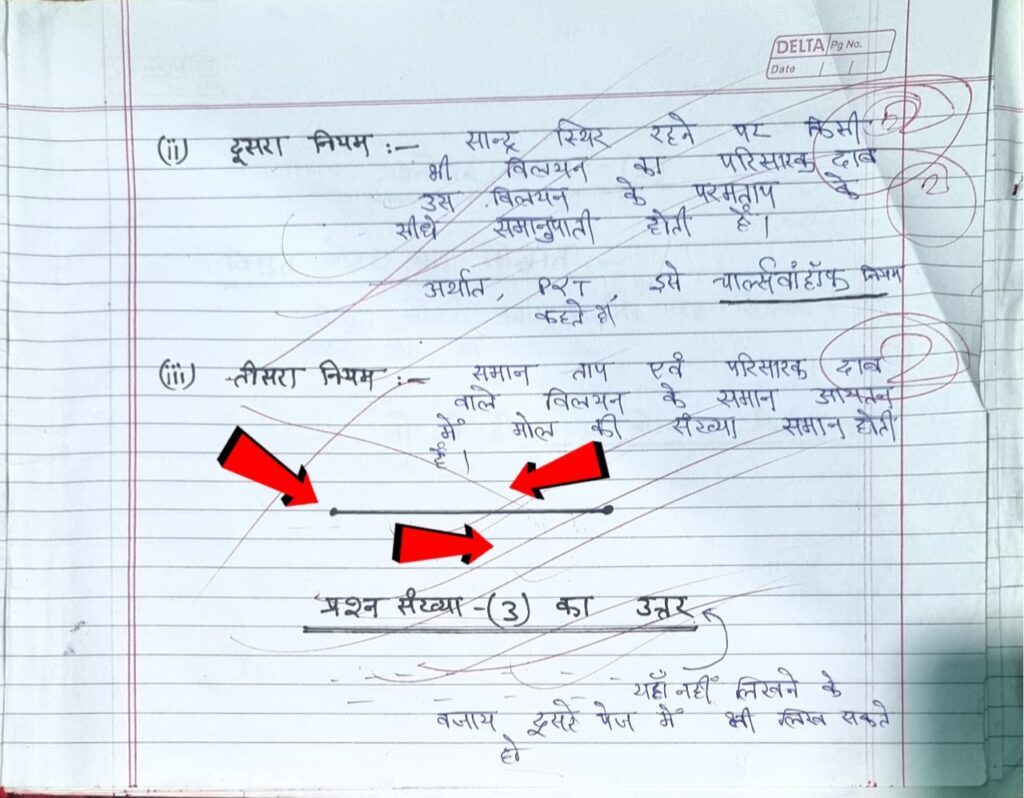 DELTA Pg No.
Date / /
(ii) दूसरा नियम :— सान्द्र स्थिर रहने पर किसी
भी विलयन का परिसारक दाब
उस विलयन के परमताप के
सीधे समानुपाती होती है।
अर्थात, PRT, इसे चार्ल्सवांहॉफ नियम
कहते हैं,
(iii) तीसरा नियम :— समान ताप एवं परिसारक दाब
वाले विलयन के समान आयतन
में मोल की संख्या समान होती
हैं।
प्रश्न संख्या -(3) का उत्तर
यहाँ नहीं लिखने के
बजाय दूसरे पेज में भी लिख सकते
हो